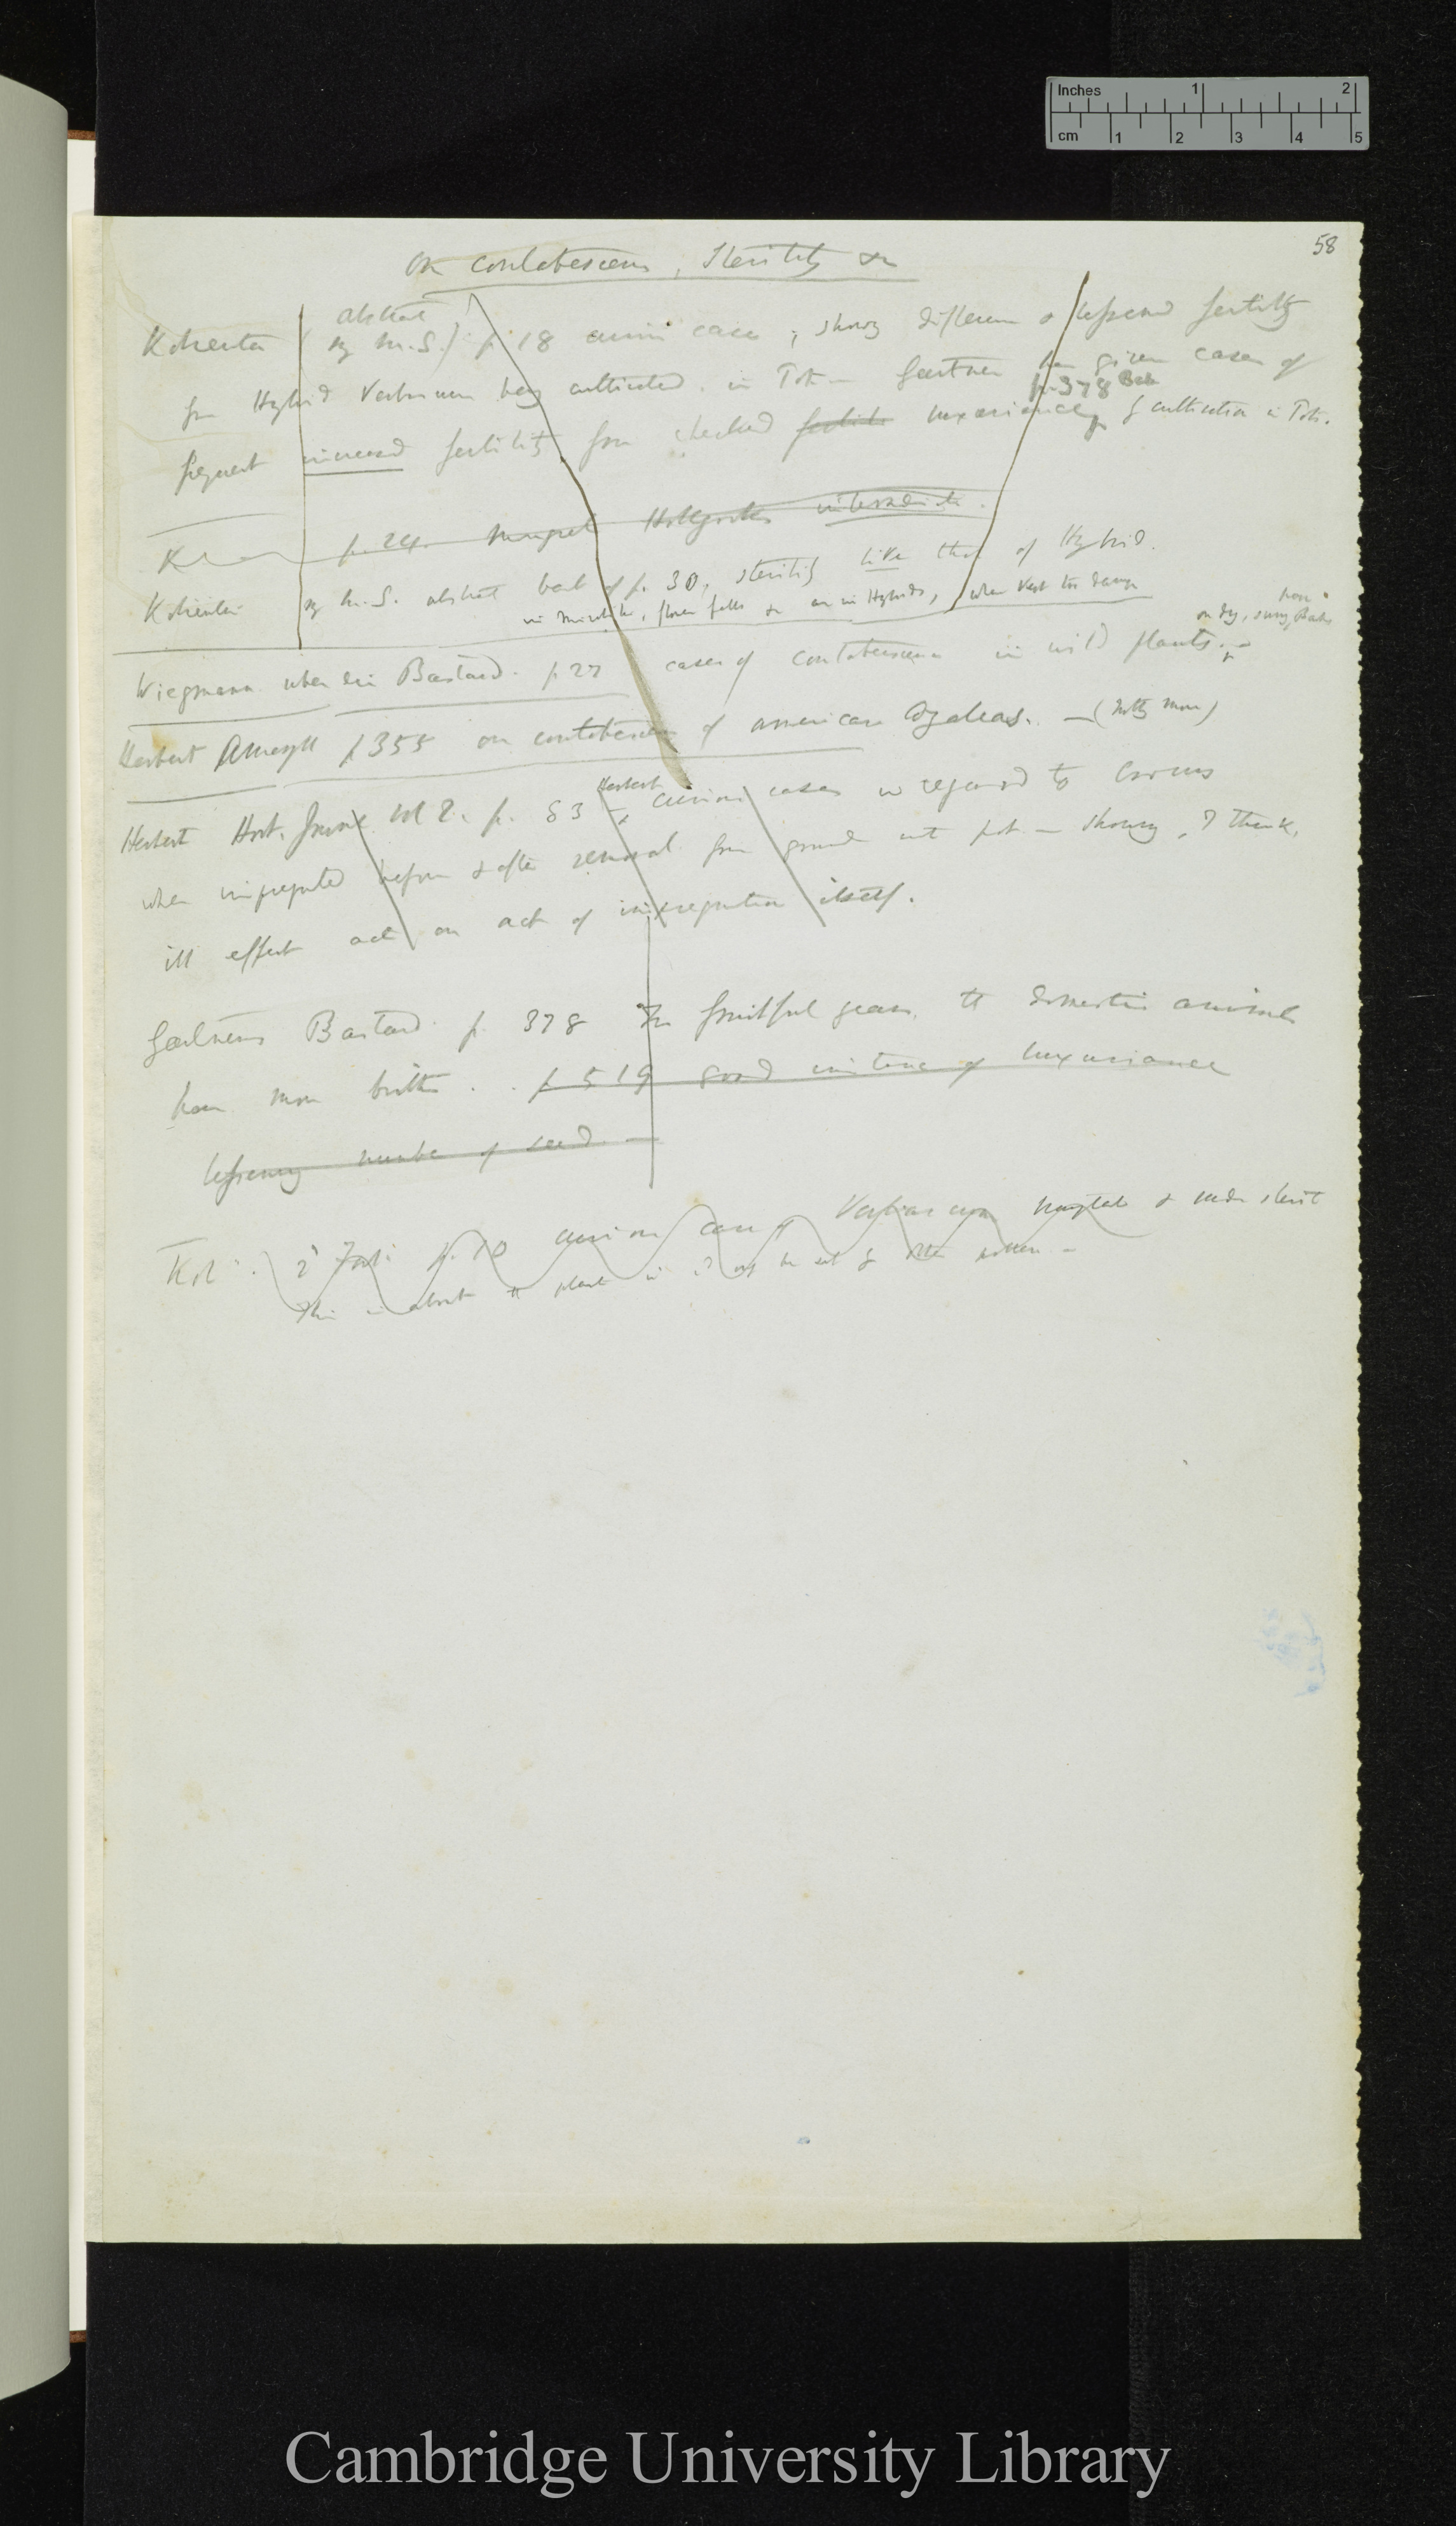 58
On contabescens, Sterility &c
Kolreuter (my abstract M.S.) p. 18 curious case, showing difference & lessened fertility
from Hybrid Verbascum being cultivated in Pots — Gartner has given cases of
frequent increased fertility from checked fertile luxuriance, p. 378 Bast by cultivation in Pots.
K p. 24. Hollyhocks intermediate.
Kolreuter my M.S. abstract back of p. 30, sterility like that of Hybrid.
in Mirabilis, flower falls &c as in Hybrids,
Wiegmann uber die Bastard. p. 27 cases of contabescence in wild plants. —
on dry, sunny Banks
Herbert Amaryll p 355 on contabescence of American Azaleas. — (nothing more)
Herbert Hort. Journal vol 2. p. 83 Herbert curious cases in regard to Crocus
when impregnated before & after removal from ground into pot — showing, I think,
ill effect act on act of impregnation itself.
Gærtners Bastard. p. 378 In fruitful years, the domestic animals
have more births . . p 519 good instance of luxuriance
lessening number of seed. —
Kol. 2d Forts. p. 10 curious case of Verbascum &
This is about the plant in set by other pollen —
Inches 1 2
cm 1 2 3 4 5
Cambridge University Library